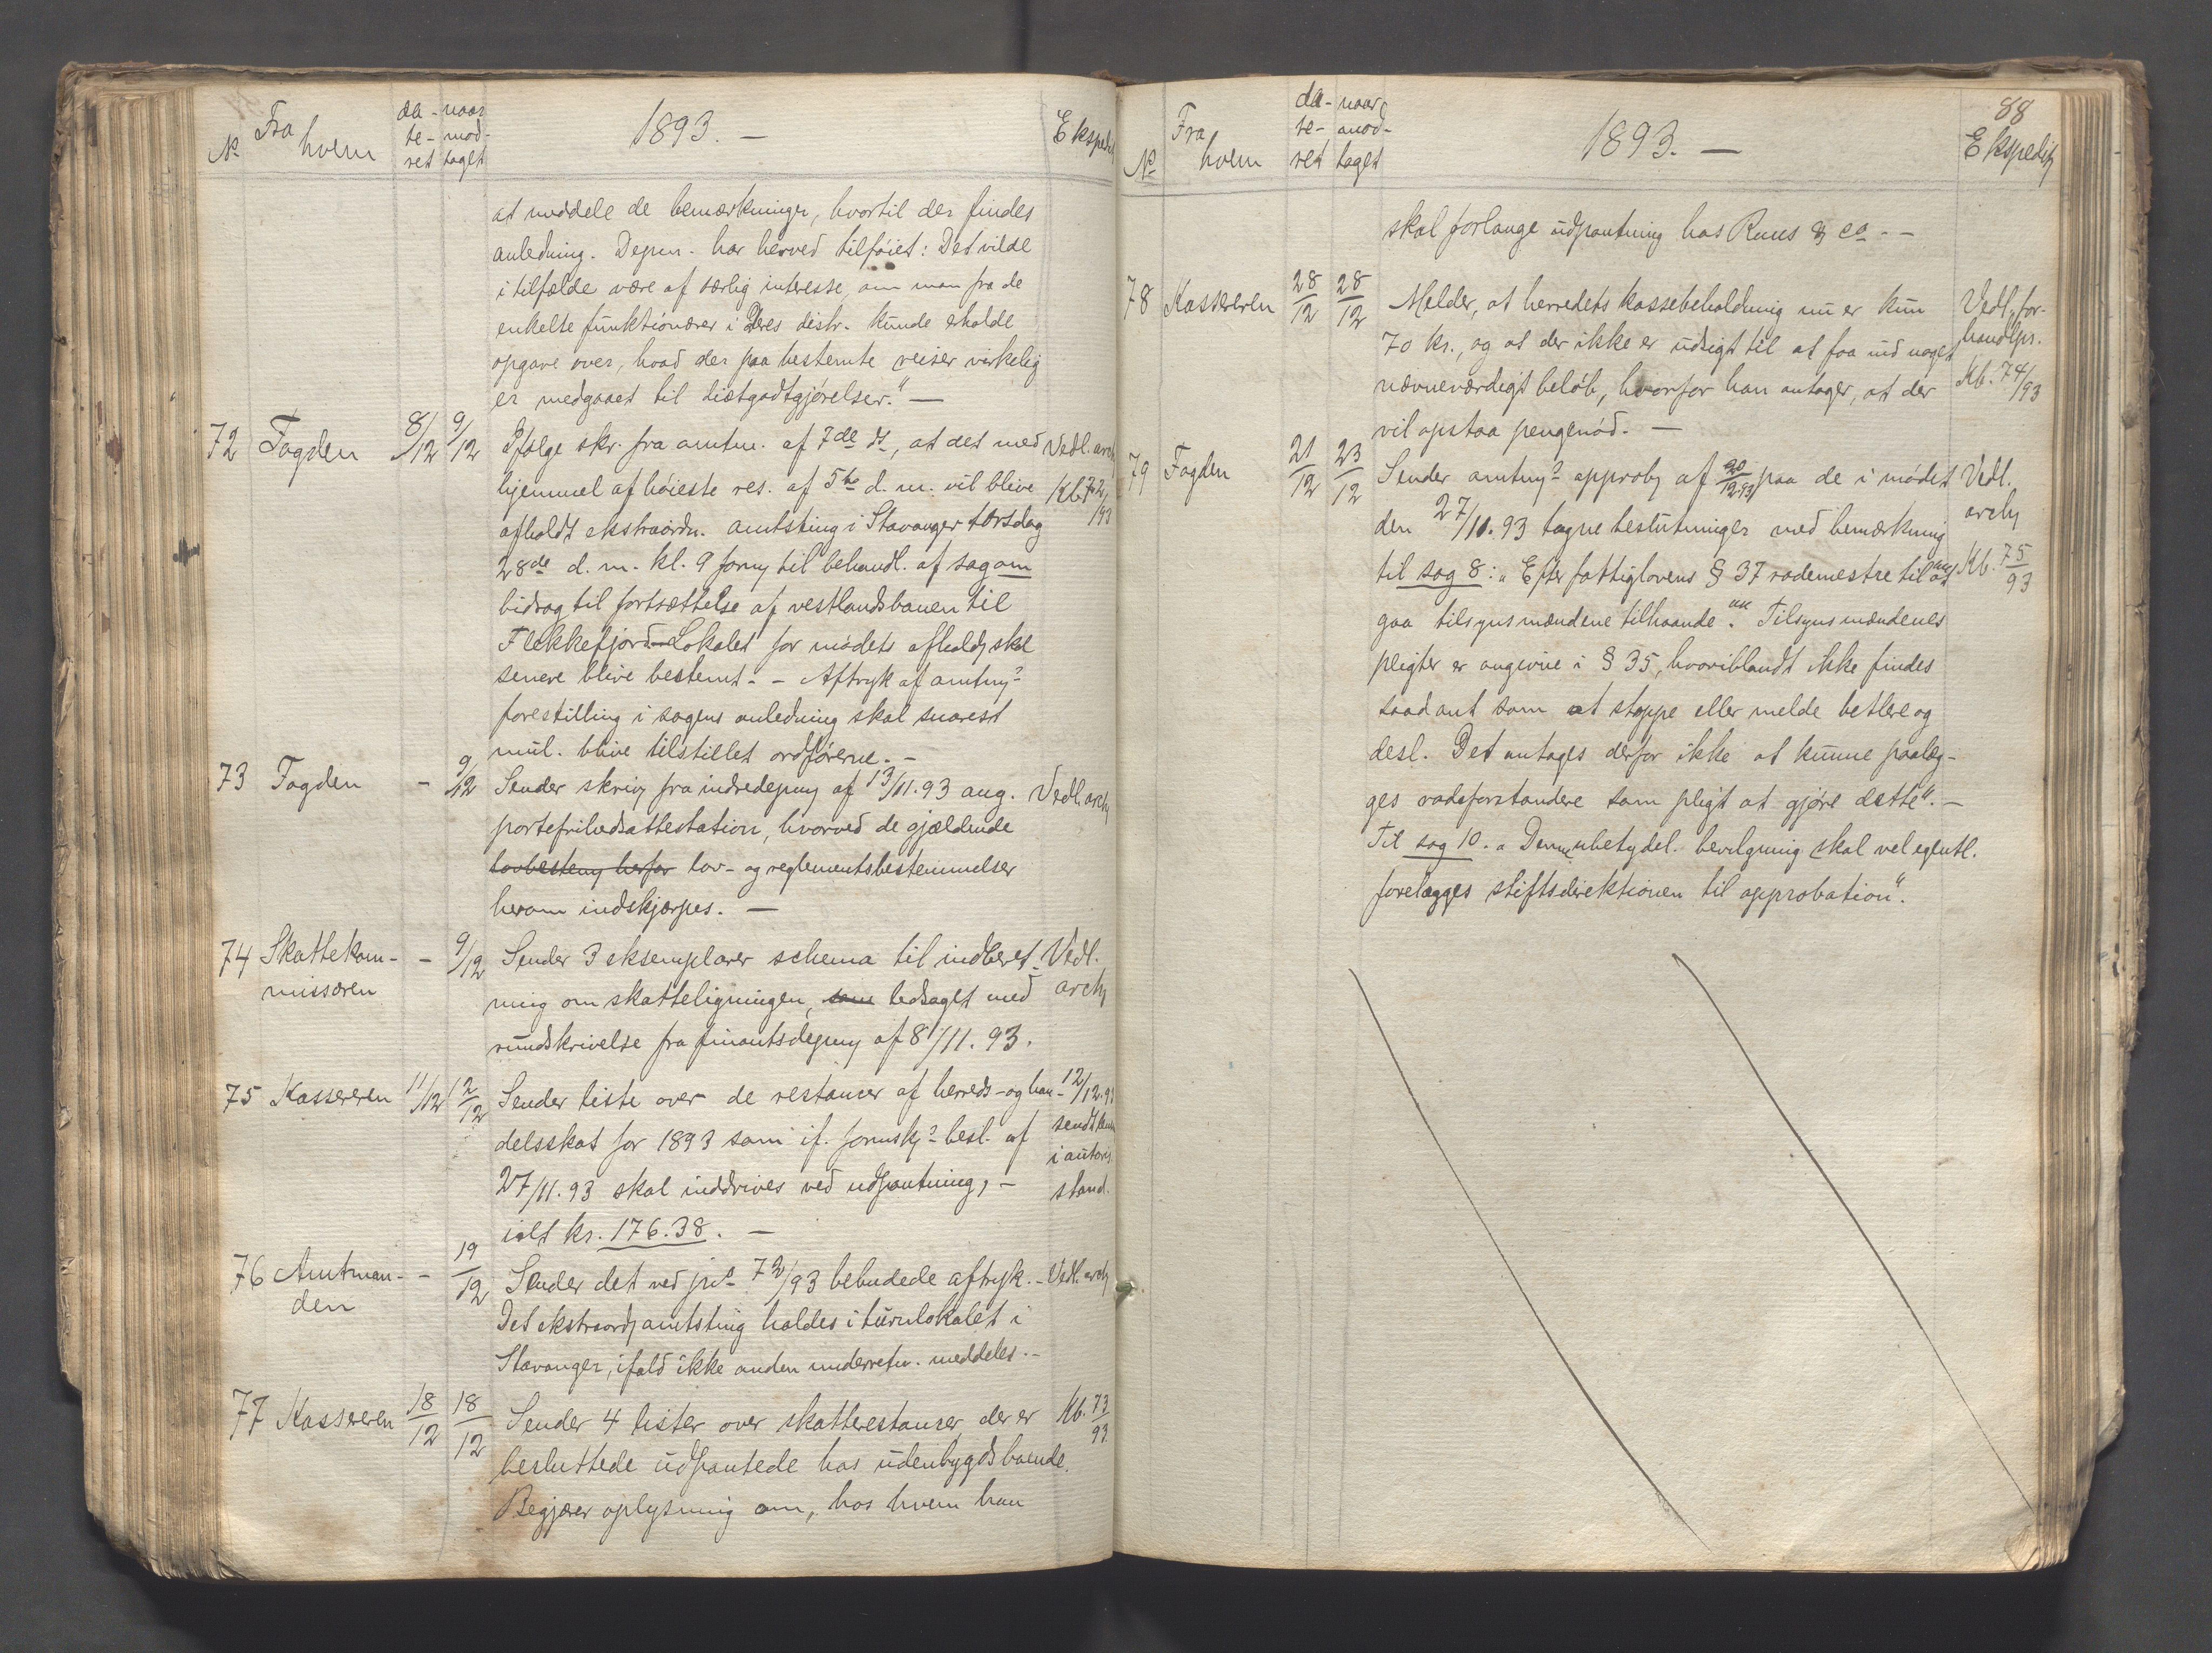 No. Fra hvem da-te-ret naar mod-taget 1893. — Eksped
at meddele de bemærkninger, hvortil der findes
anledning. Depm. har herved tilføiet: Det vilde
i tilfælde være af særlig interesse, om man fra de
enkelte funktionærer i Deres distr. kunde erholde
opgave over, hvad der paa bestemte reiser virkelig
er medgaaet til diætgodtgjørelser." —
72 Fogden 8/12 9/12 Ifølge skr. fra amtm. af 7de ds, at det med Vedl. arch
hjemmel af høieste res. af 5te d. m. vil blive Kb. 72/93
afholdt ekstraordn. amtsting i Stavanger torsdag
28de d. m. kl. 9 form til behandl. af sag om
bidrag til fortsættelse af vestlandsbanen til
Flekkefjord – Lokalet for mødets afhold skal
senere blive bestemt. – Aftryk af amtm
forestilling i sagens anledning skal snarest
mul. blive tilstillet ordførerne. –
73 Fogden – 9/12 Sender skriv fra indredepm af 13/11.93 ang. Vedl. arch
portefrihedsattestation, hvorved de gjældende
lovbestem herfor lov- og reglementsbestemmelser
herom indskjærpes. —
74 Skattekom- – 9/12 Sender 3 eksemplarer schema til indberet- Vedl.
missæren ning om skatteligningen, som ledsaget med arch
rundskrivelse fra finantsdepm af 8/11. 93.
75 Kassereren 11/12 12/12 Sender liste over de restancer af herreds- og han- 12/12.93
delsskat for 1893 som if. formskj besl. af sendt
27/11.93 skal inddrives ved udpantning, – i autoris.
ialt kr. 176.38. — stand.
76 Amtman- – 19/12 Sender det ved jno 72/93 bebudede aftryk. – Vedl. arch
den Det ekstraord amtsting holdes i turnlokalet i
Stavanger, ifald ikke anden underretn. meddeles. –
77 Kassereren 18/12 18/12 Sender 4 lister over skatterestancer, der er Kb. 73/93
besluttede udpantede hos udenbygdsboende.
Begjærer oplysning om, hos hvem han
88
No. Fra hvem da-te-ret naar mod-taget 1893. — Ekspedit
skal forlange udpantning hos & co. –
78 Kassereren 28/12 28/12 Melder, at herredets kassebeholdning nu er kun Vedl. for-
70 kr., og at der ikke er udsigt til at faa ind noget handlpr.
nævneværdigt beløb, hvorfor han antager, at der Kb. 74/93
vil opstaa pengenød. —
79 Fogden 21/12 23/12 Sender amtm approb af 20/12 93 paa de i mødet Vedl.
den 27/11.93 tagne beslutninger med bemærkning arch
til sag 8: „Efter fattiglovens § 37 rodemestre til at Kb. 75/93
gaa tilsynsmændene tilhaande". Tilsynsmændenes
pligter er angivne i § 35, hvoriblandt ikke findes
saadant som at stoppe eller melde betlere og
desl. Det antages derfor ikke at kunne paalæg-
ges rodeforstandere som pligt at gjøre dette". –
Til sag 10. „Denne ubetydel. bevilgning skal vel egentl.
forelægges stiftsdirektionen til approbation".